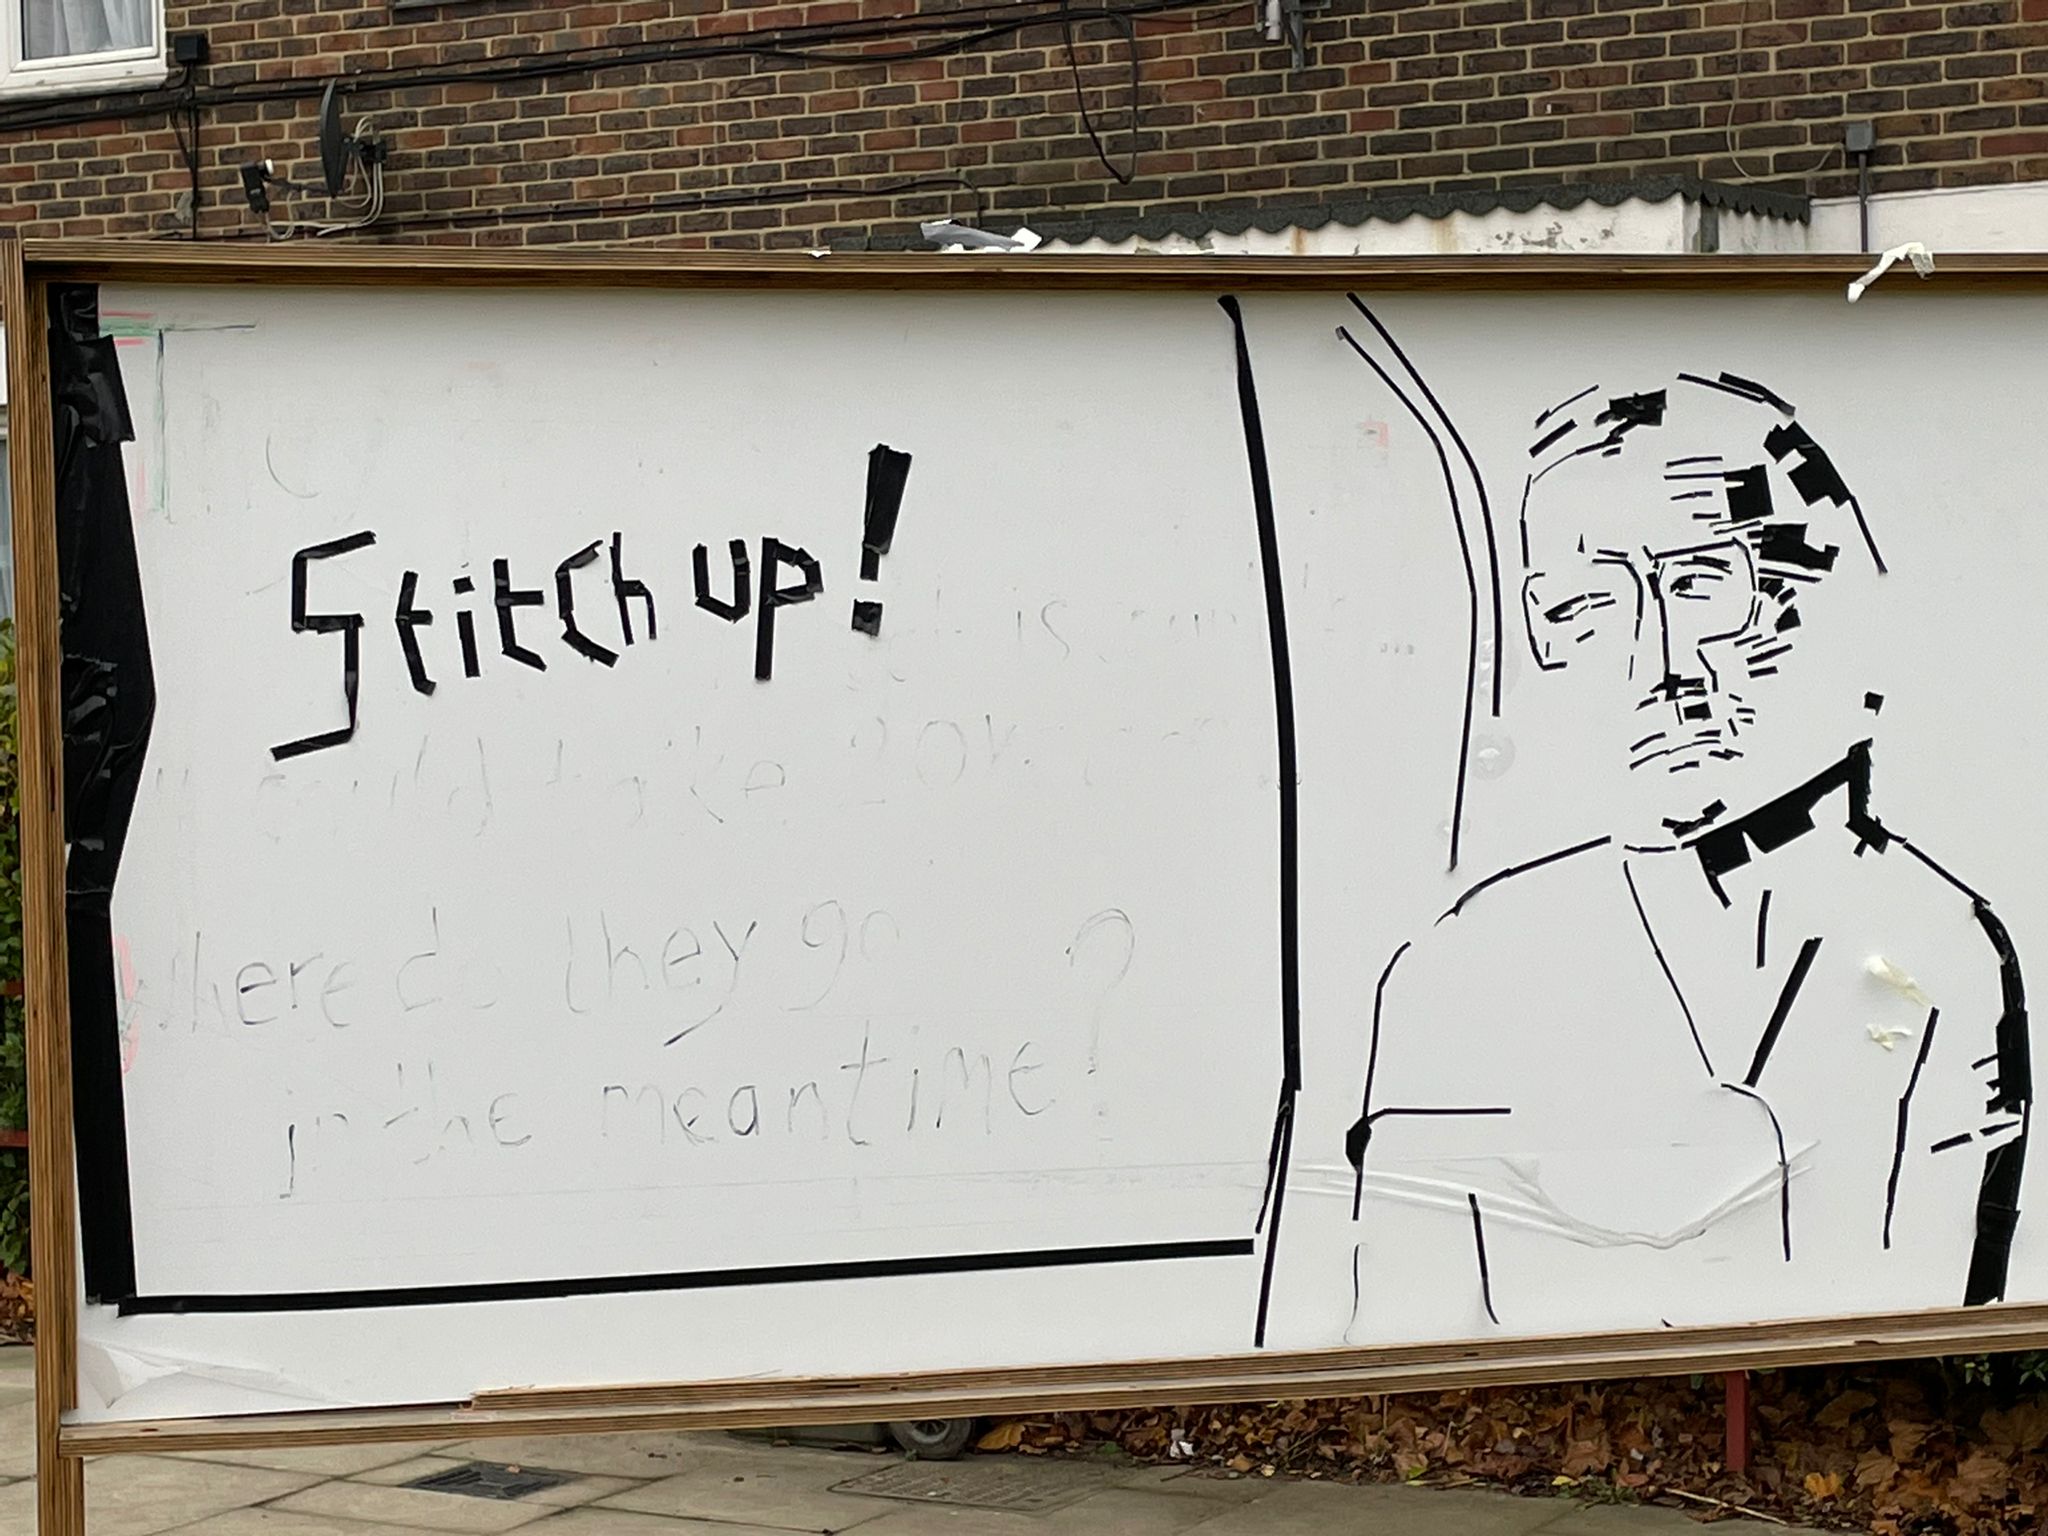 Stitch up!
is
could take 20
Where do they go ?
in the meantime!